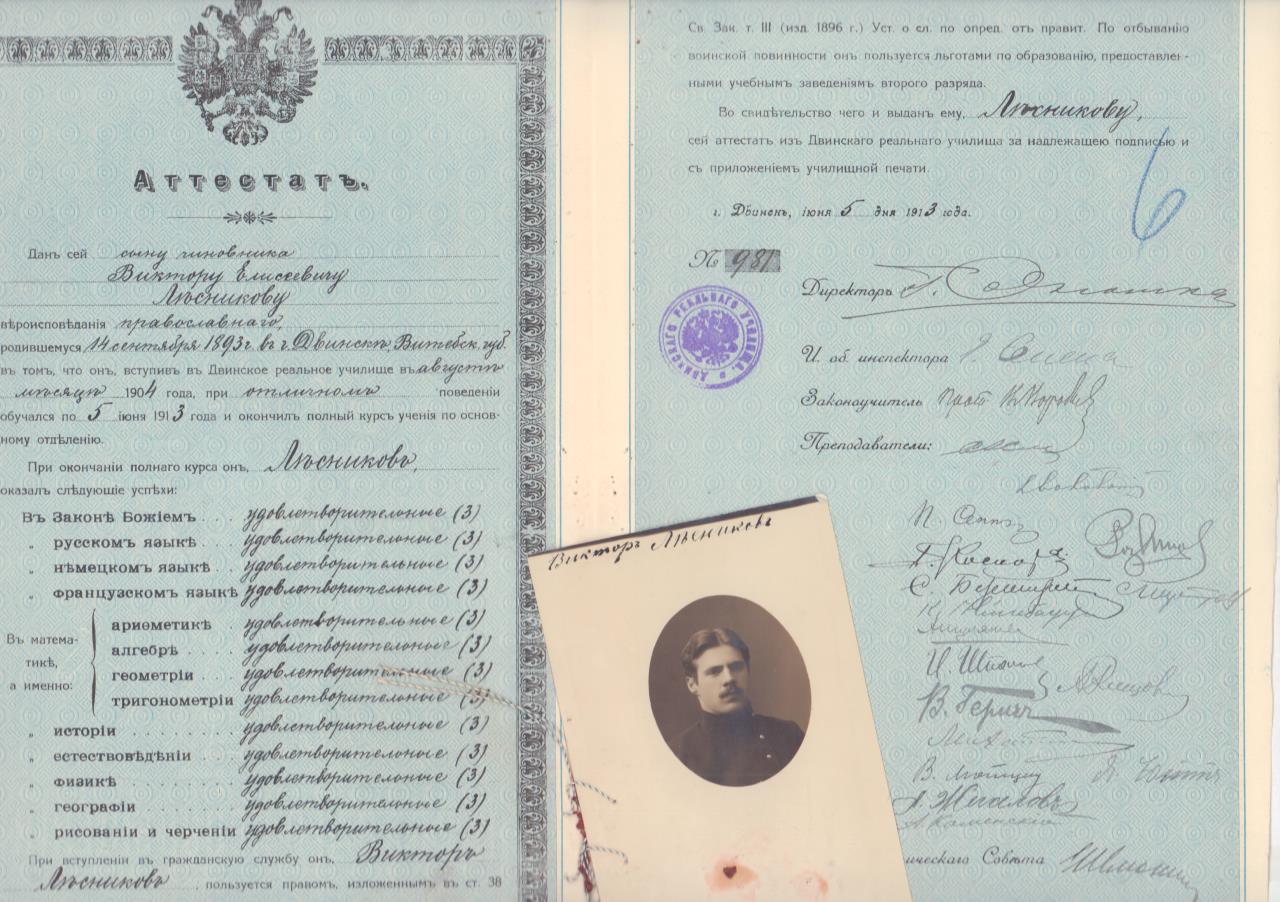 Аттестатъ.
Данъ сей сыну чиновника
Виктору Елисеевичу
Лѣсникову
вѣроисповѣданія православнаго,
родившемуся 14 сентября 1893 г. въ г. Двинскѣ, Витебск. губ.
въ томъ, что онъ, вступивъ въ Двинское реальное училище въ августѣ
мѣсяцѣ 1904 года, при отличномъ поведеніи
обучался по 5 іюня 1913 года и окончилъ полный курсъ ученія по основ-
ному отдѣленію.
При окончаніи полнаго курса онъ, Лѣсниковъ,
оказалъ слѣдующіе успѣхи:
Въ Законѣ Божіемъ . . . удовлетворительные (3)
„ русскомъ языкѣ . . . удовлетворительные (3)
„ нѣмецкомъ языкѣ . . удовлетворительные (3)
„ французскомъ языкѣ удовлетворительные (3)
Въ матема-
тикѣ,
а именно:
ариѳметикѣ . удовлетворительные (3)
алгебрѣ . . . . удовлетворительные (3)
геометріи . . . удовлетворительные (3)
тригонометріи удовлетворительные (3)
„ исторіи . . . . . . . . удовлетворительные (3)
„ естествовѣдѣніи . . . . удовлетворительные (3)
„ физикѣ . . . . . . . . удовлетворительные (3)
„ географіи . . . . . . . удовлетворительные (3)
„ рисованіи и черченіи удовлетворительные (3)
При вступленіи въ гражданскую службу онъ, Викторъ
Лѣсниковъ, пользуется правомъ, изложеннымъ въ ст. 38
Св. Зак. т. III (изд. 1896 г.) Уст. о сл. по опред. отъ правит. По отбыванію
воинской повинности онъ пользуется льготами по образованію, предоставлен-
ными учебнымъ заведеніямъ второго разряда.
Во свидѣтельство чего и выданъ ему, Лѣсникову,
сей аттестатъ изъ Двинскаго реальнаго училища за надлежащею подписью и
съ приложеніемъ училищной печати.
г. Двинскъ, іюня 5 дня 1913 года.
6
№ 981
ДВИНСКАГО РЕАЛЬНАГО УЧИЛИЩА.
Директоръ
И. об. инспектора
Законоучитель
Преподаватели:
В. Гернъ
А. Жигаловъ
А. Каменскій
ическаго Совѣта
Викторъ Лѣсниковъ